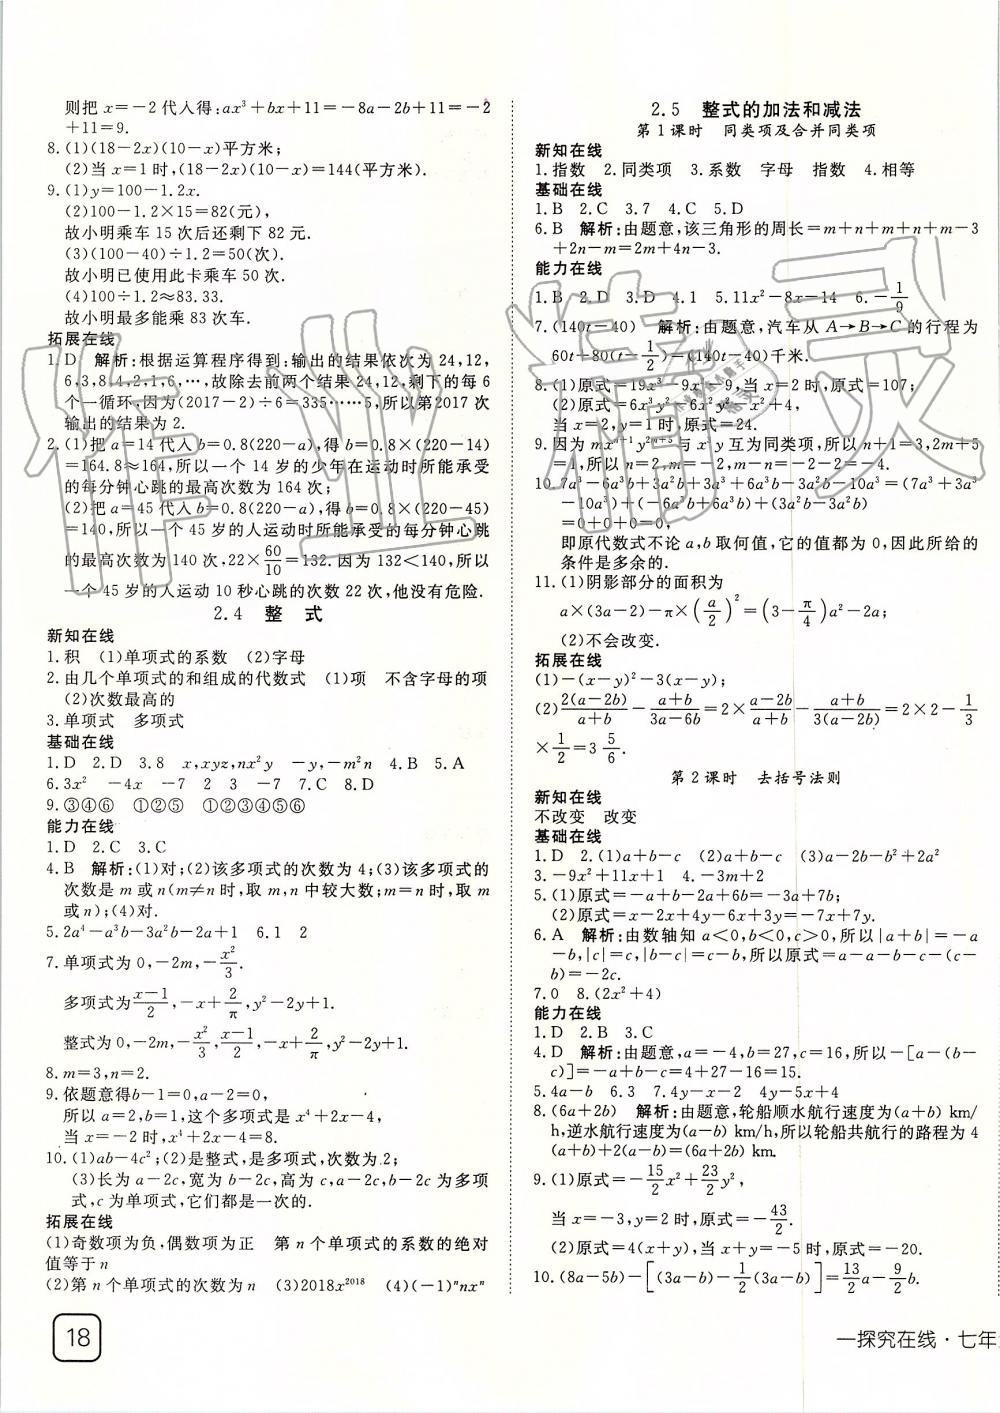 则把 x=-2 代入得:ax³+bx+11=-8a-2b+11=-2
+11=9.
8.(1)(18-2x)(10-x)平方米;
(2)当 x=1 时,(18-2x)(10-x)=144(平方米).
9.(1)y=100-1.2x.
(2)100-1.2×15=82(元),
故小明乘车 15 次后还剩下 82 元.
(3)(100-40)÷1.2=50(次).
故小明已使用此卡乘车 50 次.
(4)100÷1.2≈83.33.
故小明最多能乘 83 次车.
拓展在线
1.D 解析:根据运算程序得到:输出的结果依次为 24,12,
6,3,8,4,2,1,6,…,故除去前两个结果 24,12,剩下的每 6
个一循环,因为(2017-2)÷6=335……5,所以第2017次
输出的结果为 2.
2.(1)把 a=14 代入 b=0.8(220-a),得 b=0.8×(220-14)
=164.8≈164,所以一个 14 岁的少年在运动时所能承受
的每分钟心跳的最高次数为 164 次;
(2)把 a=45 代入 b=0.8(220-a),得 b=0.8×(220-45)
=140,所以一个 45 岁的人运动时所能承受的每分钟心跳
的最高次数为 140 次.22×60/10=132. 因为 132<140,所以
一个 45 岁的人运动 10 秒心跳的次数 22 次,他没有危险.
2.4 整 式
新知在线
1.积 (1)单项式的系数 (2)字母
2.由几个单项式的和组成的代数式 (1)项 不含字母的项
(2)次数最高的
3.单项式 多项式
基础在线
1.D 2.D 3.8 x,xyz,nx²y -y,-m²n 4.B 5.A
6.3x² -4x -7 2 3 -7 7.C 8.C
9.③④⑥ ①②⑤ ①②③④⑤⑥
能力在线
1.D 2.C 3.C
4.B 解析:(1)对;(2)该多项式的次数为 4;(3)该多项式的
次数是 m 或 n(m≠n 时,取 m,n 中较大数;m=n 时,取 m
或 n);(4)对.
5.2a⁴-a³b-3a²b-2a+1 6.1 2
7.单项式为 0,-2m,-x²/3.
多项式为(x-1)/2,-x+2/π,y²-2y+1.
整式为 0,-2m,-x²/3,(x-1)/2,-x+2/π,y²-2y+1.
8.m=3,n=2.
9.依题意得b-1=0,a-2=0.
所以 a=2,b=1,这个多项式是 x⁴+2x-4,
当 x=-2时,x⁴+2x-4=8.
10.(1)ab-4c²;(2)是整式,是多项式,次数为2;
(3)长为 a-2c,宽为 b-2c,高为 c,a-2c,b-2c 为多项
式,c 为单项式,它们都是一次的.
拓展在线
(1)奇数项为负,偶数项为正 第 n 个单项式的系数的绝对
值等于 n
(2)第 n 个单项式的次数为 n (3)2018x²⁰¹⁸ (4)(-1)ⁿnxⁿ
18
2.5 整式的加法和减法
第 1 课时 同类项及合并同类项
新知在线
1.指数 2.同类项 3.系数 字母 指数 4.相等
基础在线
1.B 2.C 3.7 4.C 5.D
6.B 解析:由题意,该三角形的周长=m+n+m+n+m-3
+2n-m=2m+4n-3.
能力在线
1.B 2.D 3.D 4.1 5.11x²-8x-14 6.-1/9
7.(140t-40) 解析:由题意,汽车从 A→B→C 的行程为
60t+80(t-1/2)=(140t-40)千米.
8.(1)原式=19x³-9x-9,当 x=2 时,原式=107;
(2)原式=6x³y²-6x²y²-x²+4,
当 x=2,y=1 时,原式=24.
9.因为 mxⁿ⁺¹y²ᵐ⁺⁵与 x³y 互为同类项,所以 n+1=3,2m+5
=1,所以 n=2,m=-2,所以 m-n=-2-2=-4.
10.7a³-6a³b+3a²b+3a³+6a³b-3a²b-10a³=(7a³+3a³
-10a³)+(-6a³b+6a³b)+(3a²b-3a²b)=0,
即原代数式不论 a,b 取何值,它的值都为 0,因此所给的
条件是多余的.
11.(1)阴影部分的面积为
a×(3a-2)-π×(a/2)²=(3-π/4)a²-2a;
(2)不会改变.
拓展在线
(1)-(x-y)²-3(x-y);
(2)2(a-2b)/(a+b)-(a+b)/(3a-6b)=2×(a-2b)/(a+b)-(a+b)/(3(a-2b))=2×2-1/3
×1/2=3 5/6.
第 2 课时 去括号法则
新知在线
不改变 改变
基础在线
1.D 2.(1)a+b-c (2)a+b-c (3)a-2b-b²+2a²
3.-9x²+11x+1 4.-3m+2
5.(1)原式=-a+b-2a+6b=-3a+7b;
(2)原式=x-2x+4y-6x+3y=-7x+7y.
6.A 解析:由数轴知 a<0,b<0,c>0,所以|a+b|=-a
-b,|c|=c,|b-c|=c-b,所以原式=-a-b-c-(c-
b)=-2c.
7.0 8.(2x²+4)
能力在线
1.D 2.B 3.C
4.D 解析:由题意,a=-4,b=27,c=16,所以-[a-(b-
c)]=-a+b-c=4+27-16=15.
5.4a-b 6.3 7.4y-x-2 4y-5x+4
8.(6a+2b) 解析:由题意,轮船顺水航行速度为(a+b) km/
h,逆水航行速度为(a-b) km/h,所以轮船共航行的路程为 4
(a+b)+2(a-b)=(6a+2b) km.
9.(1)原式=-15/2x²+23/2y²,
当 x=-3,y=2 时,原式=-43/2.
(2)原式=4(x+y),当 x+y=-5 时,原式=-20.
10.(8a-5b)-[(3a-b)-1/2(3a-b)]=13/2a-9/2b.
一探究在线·七年
作业精灵